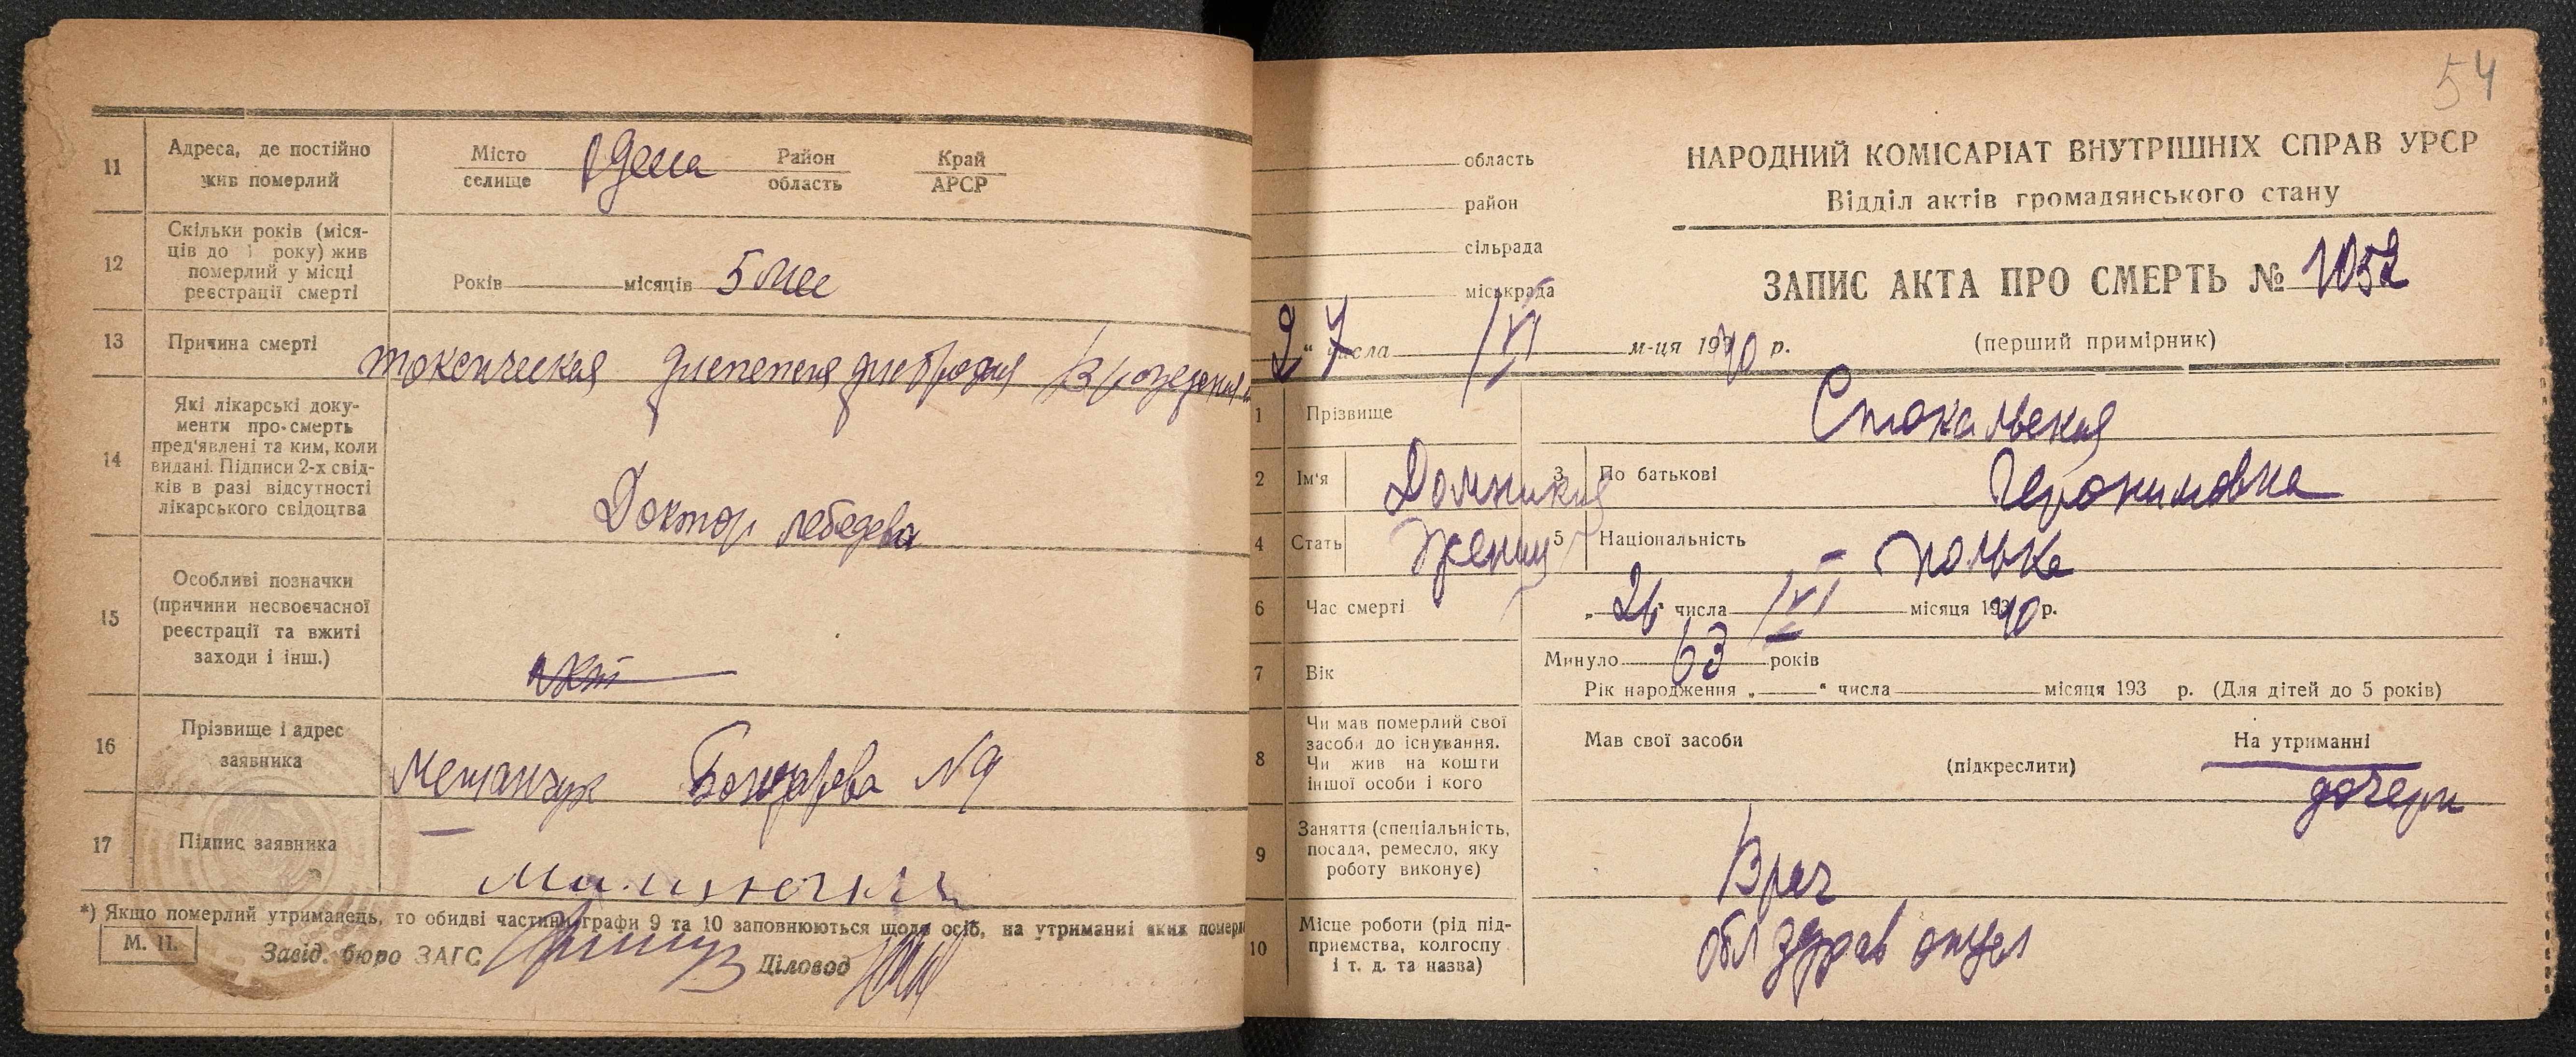 11 Адреса, де постійно жив померлий
Місто селище Одеса Район область Край АРСР
12 Скільки років (міся-
ців до 1 року) жив
померлий у місці
реєстрації смерті
Років місяців 5 мес
13 Причина смерті токсическая диспепсия дистрофия
14 Які лікарські доку-
менти про смерть
пред'явлені та ким, коли
видані. Підписи 2-х свід-
ків в разі відсутності
лікарського свідоцтва
Доктор Лебедева
15 Особливі позначки
(причини несвоєчасної
реєстрації та вжиті
заходи і інш.)
16 Прізвище і адрес
заявника
Мешанчук Бондарева N9
17 Підпис заявника
*) Якщо померлий утриманець, то обидві частини графи 9 та 10 заповнюються щодо осіб, на утриманні яких помер
М. П. Завід. бюро ЗАГС Діловод
54
область
район
сільрада
міськрада
27 " числа VI м-ця 1940 р.
НАРОДНИЙ КОМІСАРІАТ ВНУТРІШНІХ СПРАВ УРСР
Відділ актів громадянського стану
ЗАПИС АКТА ПРО СМЕРТЬ № 1052
(перший примірник)
1 Прізвище Стокальская
2 Ім'я Домникия 3 По батькові Иеронимовна
4 Стать женщ 5 Національність полька
6 Час смерті „ 26 " числа VI місяця 1940 р.
7 Вік
Минуло 63 років
Рік народження „ " числа місяця 193 р. (Для дітей до 5 років)
8 Чи мав померлий свої
засоби до існування.
Чи жив на кошти
іншої особи і кого
Мав свої засоби (підкреслити) На утриманні
дочери
9 Заняття (спеціальність,
посада, ремесло, яку
роботу виконує)
Врач
10 Місце роботи (рід під-
приємства, колгоспу
і т. д. та назва)
облздрав отдел